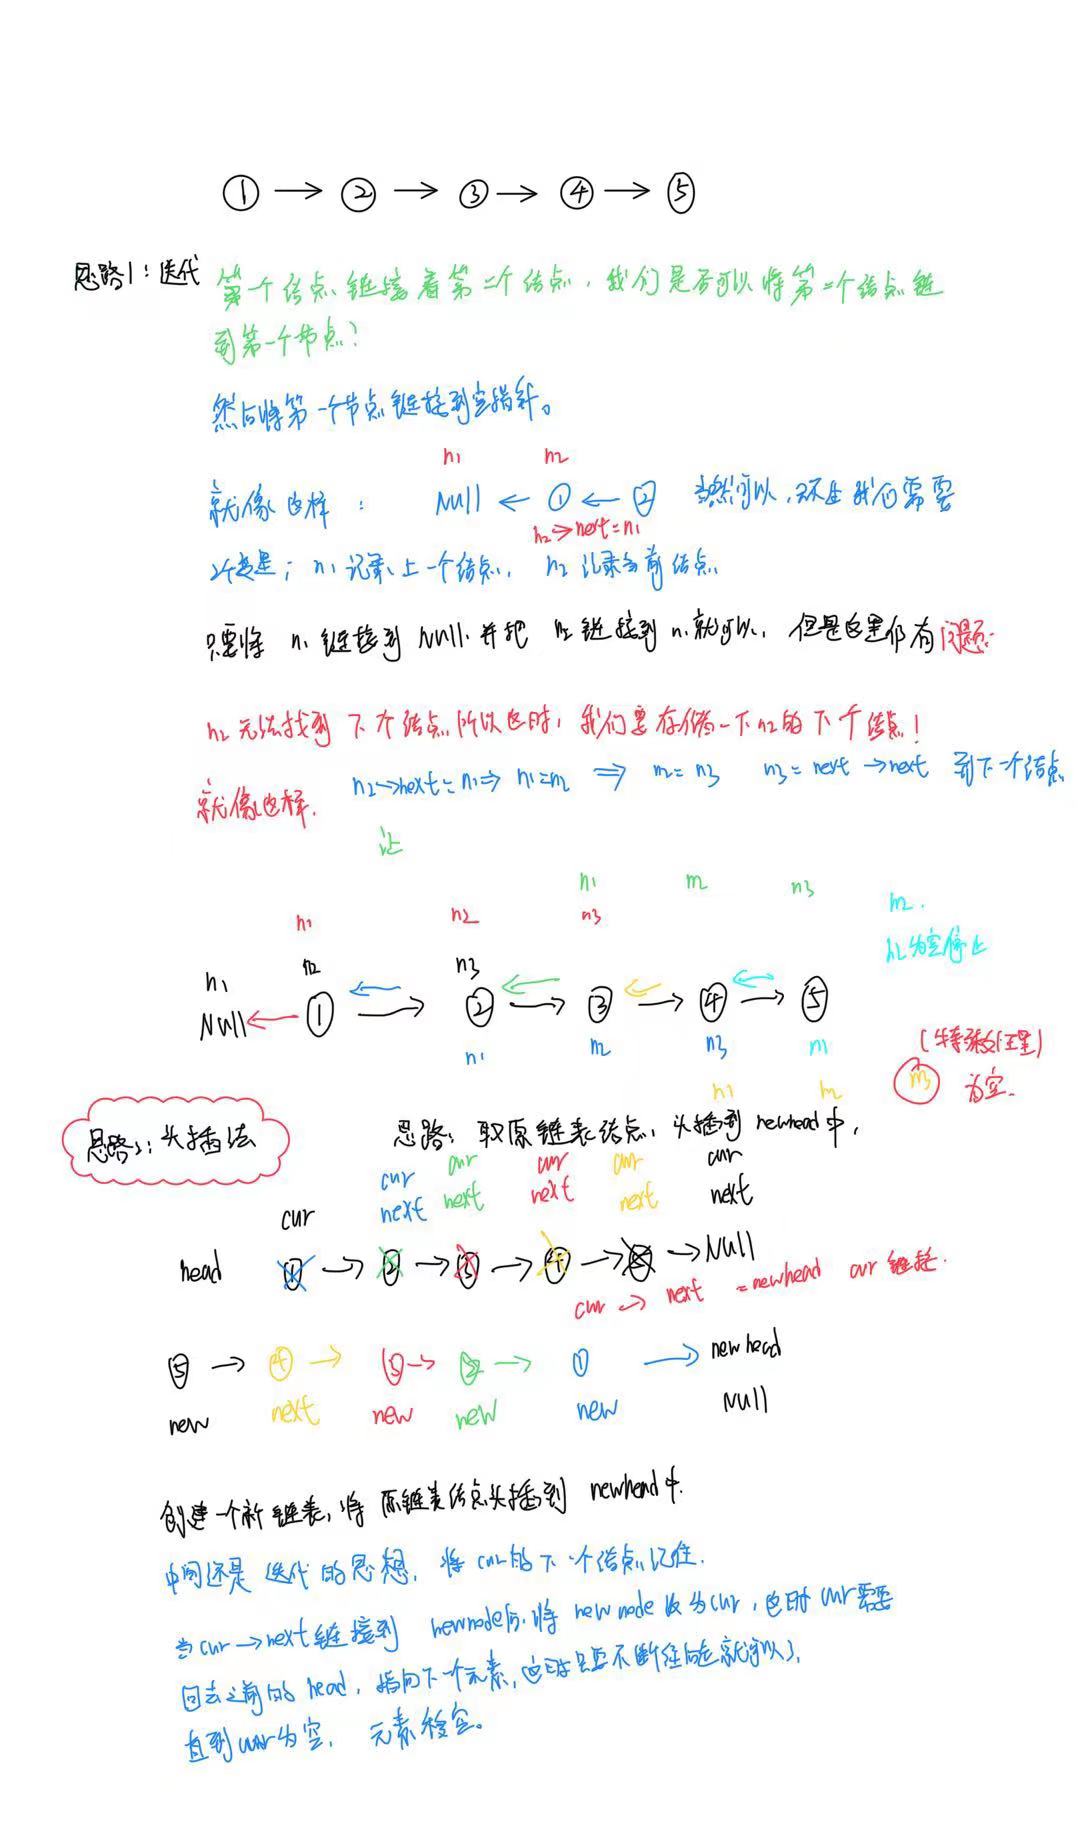 ① → ② → ③ → ④ → ⑤
思路1：迭代 第一个结点链接着第二个结点，我们是否可以将第二个结点链
到第一个节点？
然后将第一个节点链接到空指针。
n1 n2
就像这样： Null ← ① ← ② 当然可以，我们需要
n2→next=n1
2个变量；n1记录上一个结点，n2记录当前结点
只要将n1链接到Null.并把n2链接到n1就可以，但是这里仍有问题.
n2无法找到下个结点所以这时，我们要存储一下n2的下个结点！
就像这样. n2→next=n1⇒ n1=n2 ⇒ n2=n3 n3=next→next 到下一个结点
让
n1 n2 n3
n1 n2 n3 n2.
n2为空停止
n1 n2 n3
Null ← ① → ② → ③ → ④ → ⑤
n1 n2 n3 n1
(特殊处理)
n1 n2 n3 为空.
思路2：头插法 思路：取原链表结点，头插到newhead中，
cur cur cur cur cur
next next next next next
cur
head ① → ② → ③ → ④ → ⑤ → Null
cur → next = newhead cur链接.
⑤ → ④ → ③ → ② → ① → newhead
new next new new new Null
创建一个新链表，将原链表结点头插到newhead中.
中间还是迭代的思想，将cur的下一个结点记住.
当cur→next链接到newnode后，将newnode改为cur，这时cur需要
回去之前的head，指向下一个元素，这时只要不断往后走就可以了，
直到cur为空，元素移空。